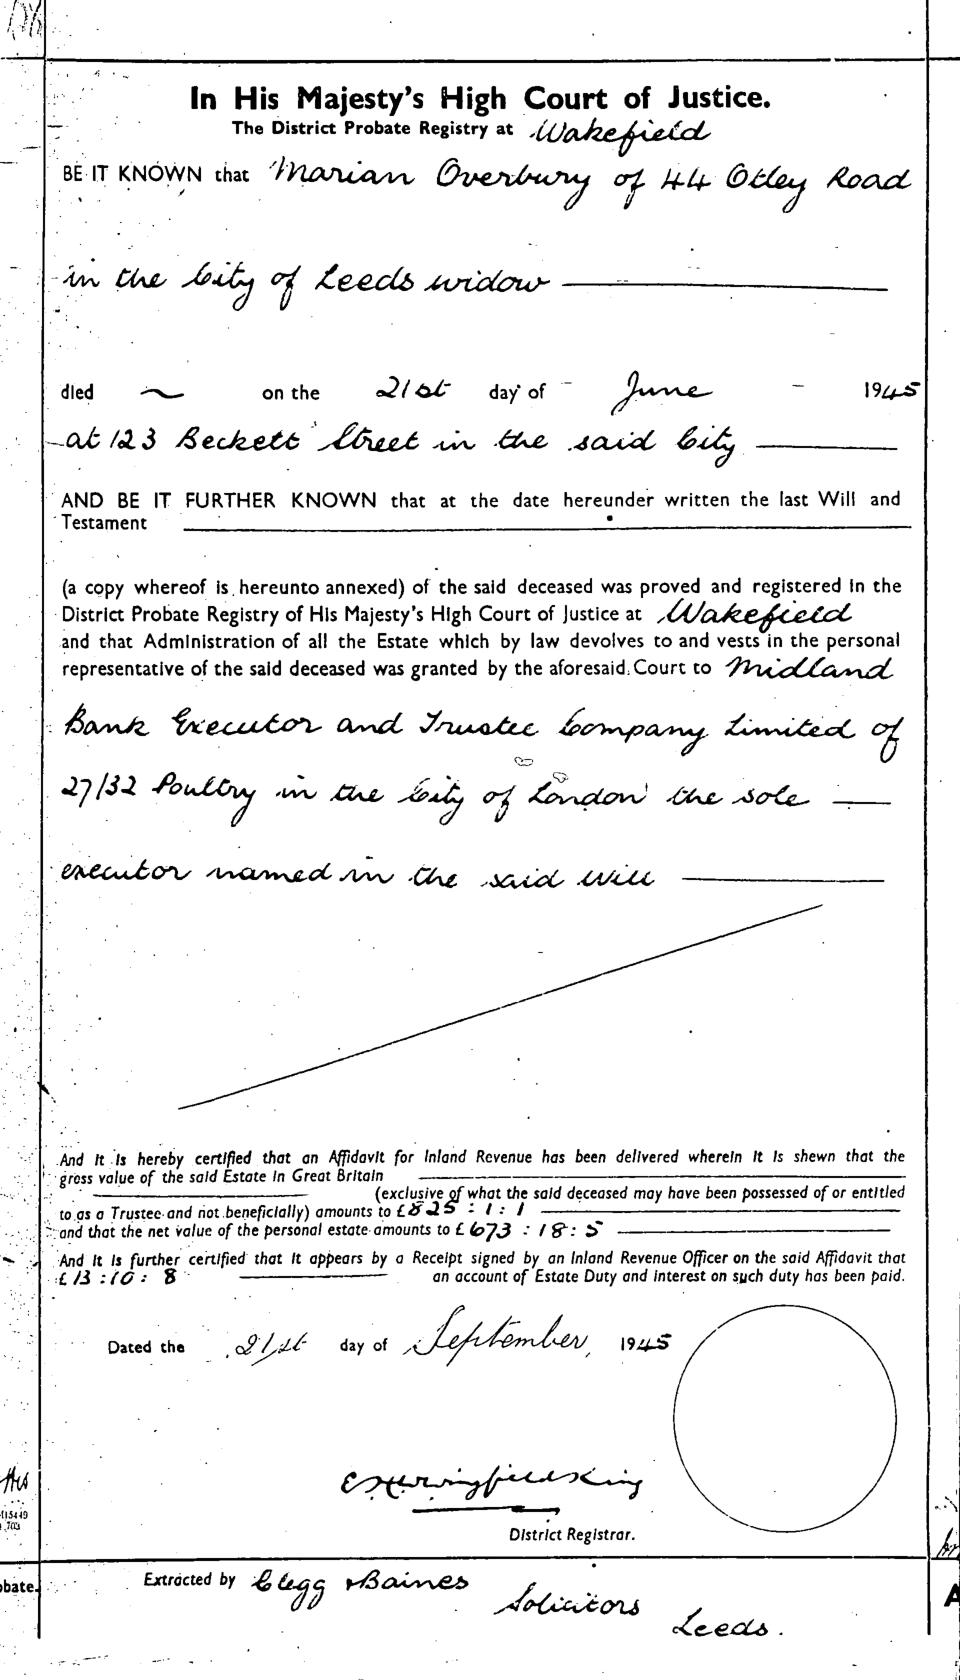 In His Majesty's High Court of Justice.
The District Probate Registry at Wakefield
BE IT KNOWN that Marian Overbury of 44 Otley Road
in the City of Leeds widow
died on the 21st day of June 1945
at 123 Beckett Street in the said City
AND BE IT FURTHER KNOWN that at the date hereunder written the last Will and
Testament
(a copy whereof is hereunto annexed) of the said deceased was proved and registered in the
District Probate Registry of His Majesty's High Court of Justice at Wakefield
and that Administration of all the Estate which by law devolves to and vests in the personal
representative of the said deceased was granted by the aforesaid Court to Midland
Bank Executor and Trustee Company Limited of
27/32 Poultry in the City of London the sole
executor named in the said will
And it is hereby certified that an Affidavit for Inland Revenue has been delivered wherein it is shewn that the
gross value of the said Estate in Great Britain
(exclusive of what the said deceased may have been possessed of or entitled
to as a Trustee and not beneficially) amounts to £825 : 1 : 1
and that the net value of the personal estate amounts to £673 : 18 : 5
And it is further certified that it appears by a Receipt signed by an Inland Revenue Officer on the said Affidavit that
£13 : 10 : 8 an account of Estate Duty and interest on such duty has been paid.
Dated the 21st day of September 1945
District Registrar.
Extracted by Clegg & Baines
Solicitors
Leeds.
obate.